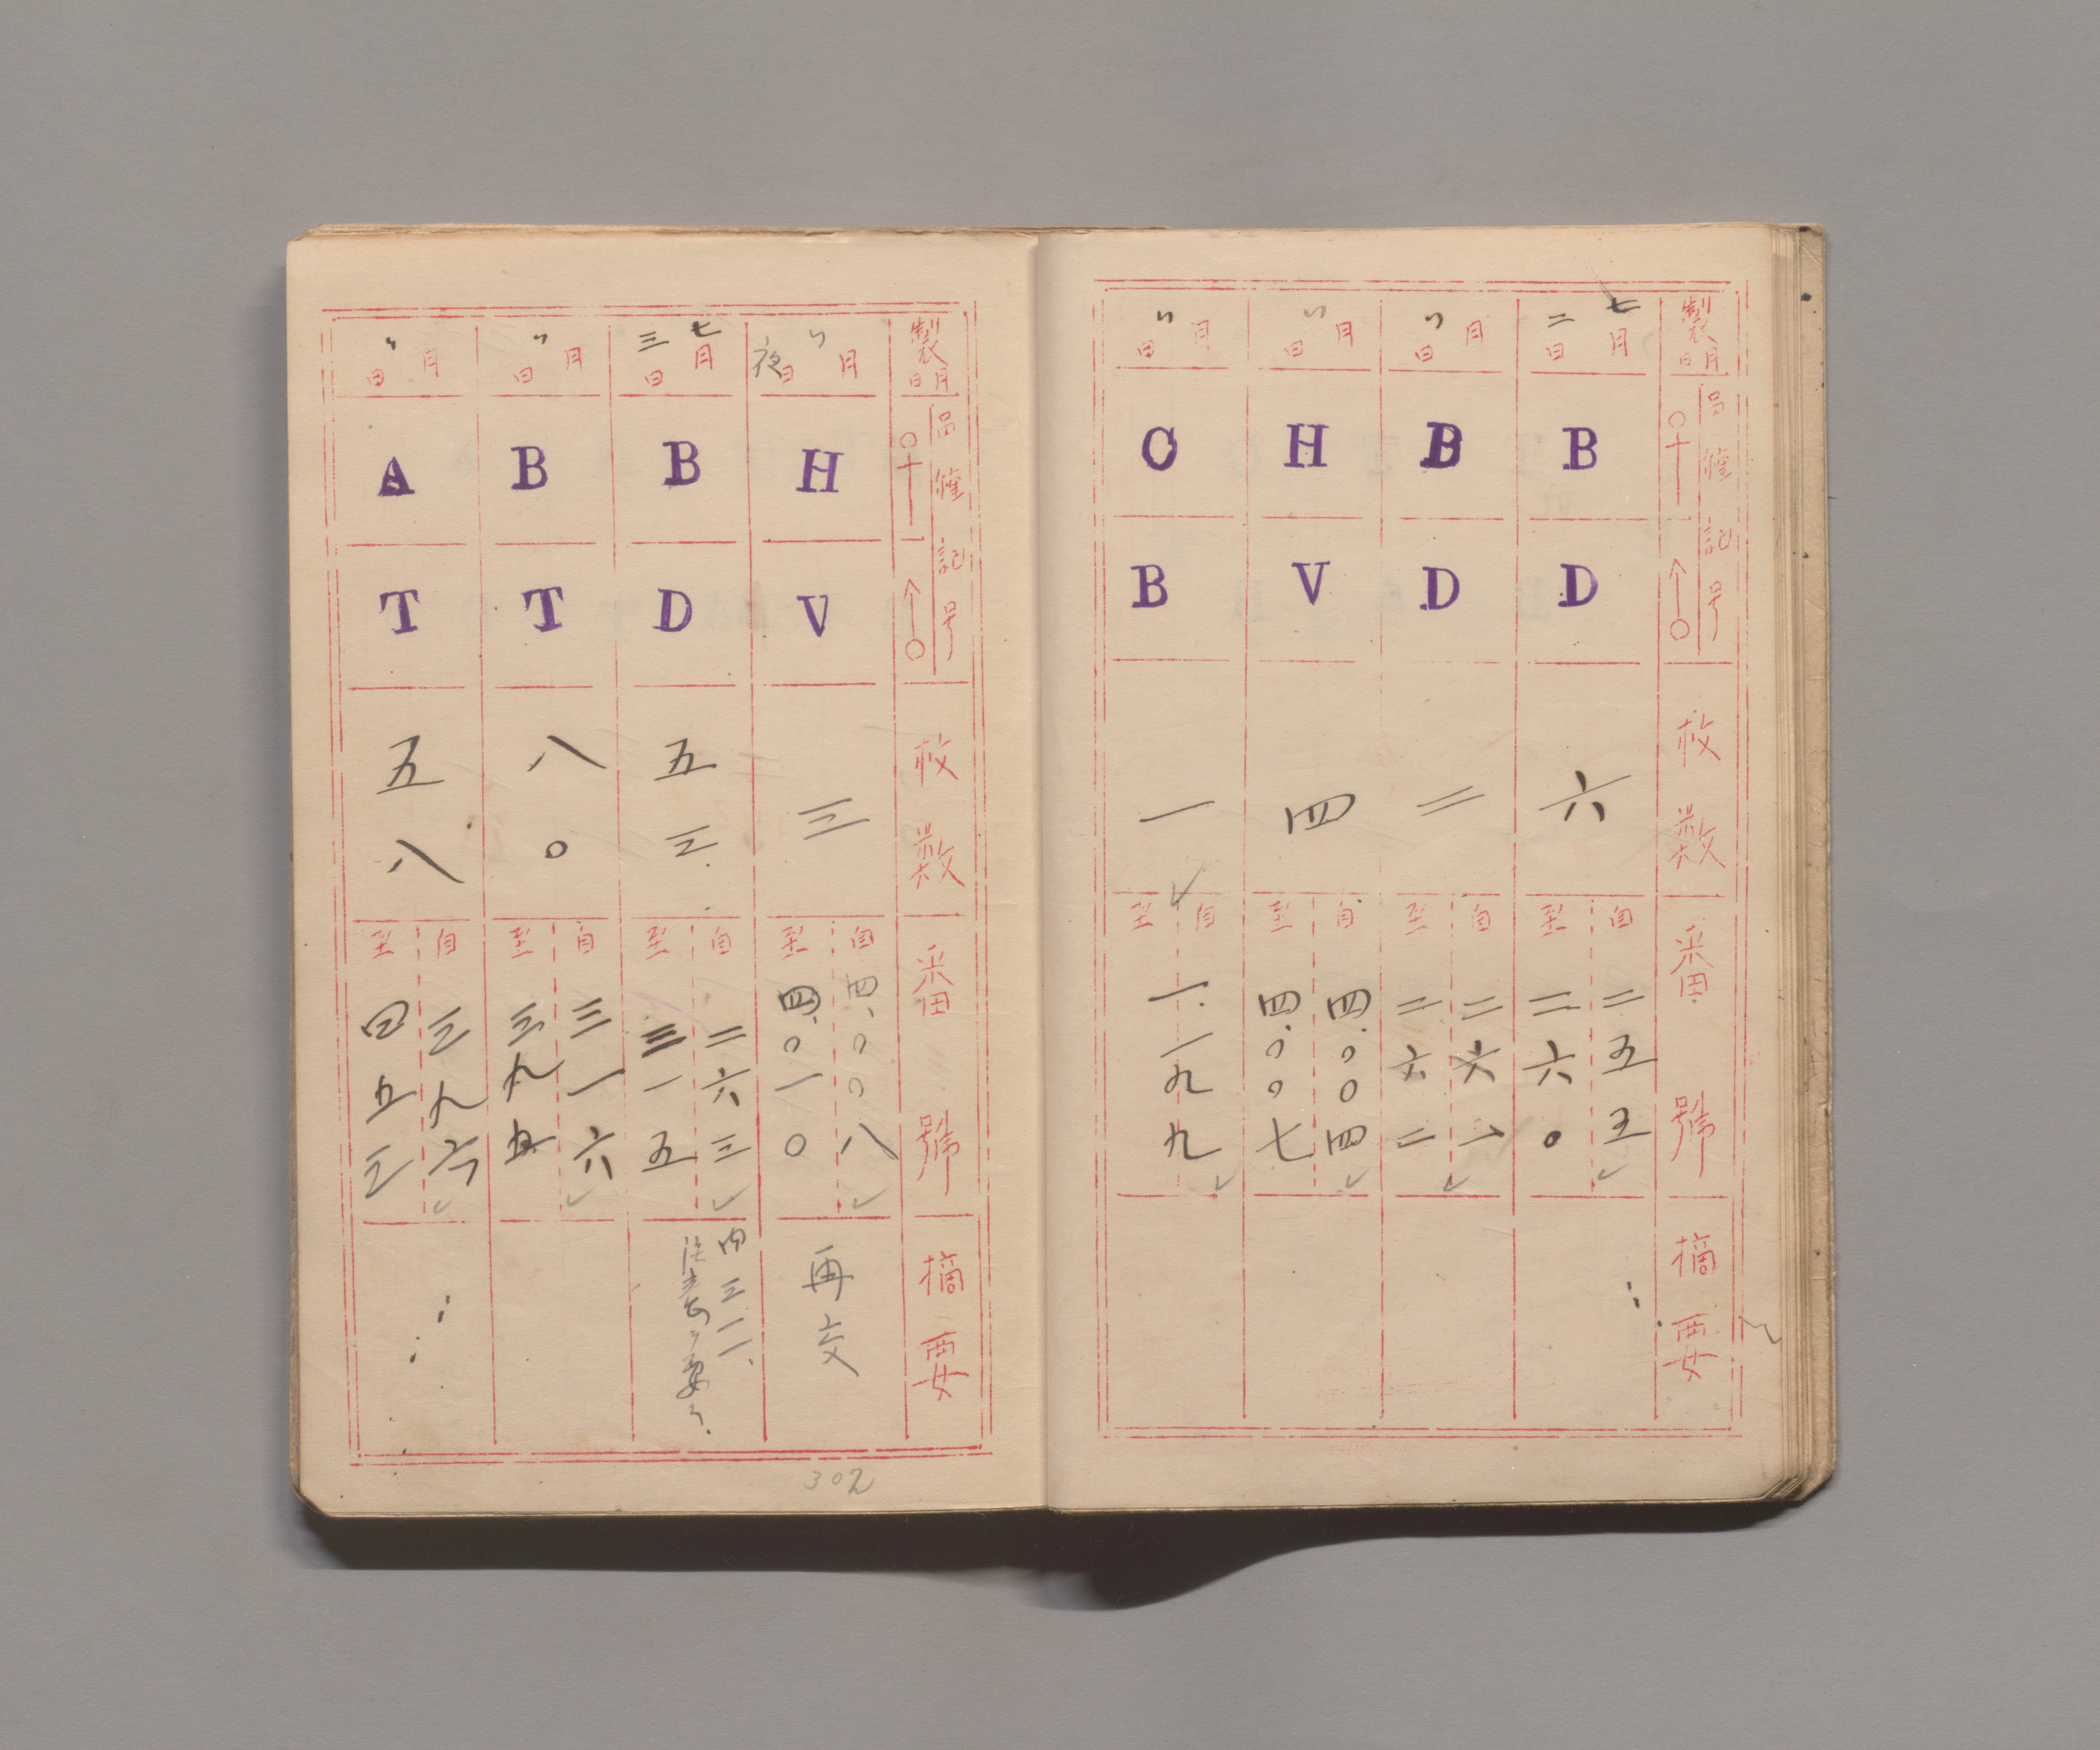 製月日
局種記号
枚数
番號
摘要
七月二日
B
D
六
自二五五
至二六〇
〃月日
B
D
二
自二六一
至二六二
〃月日
H
V
四
自四.〇〇四
至四.〇〇七
〃月日
O
B
一
自至
一.一九九
製月日
局種記号
枚数
番號
摘要
〃月日夜
H
V
三
自四.〇〇八
至四.〇一〇
再交
七月三日
B
D
五三
自二六三
至三一五
内三一一.
〃月日
B
T
八〇
自三一六
至三九五
〃月日
A
T
五八
自三九六
至四五三
302